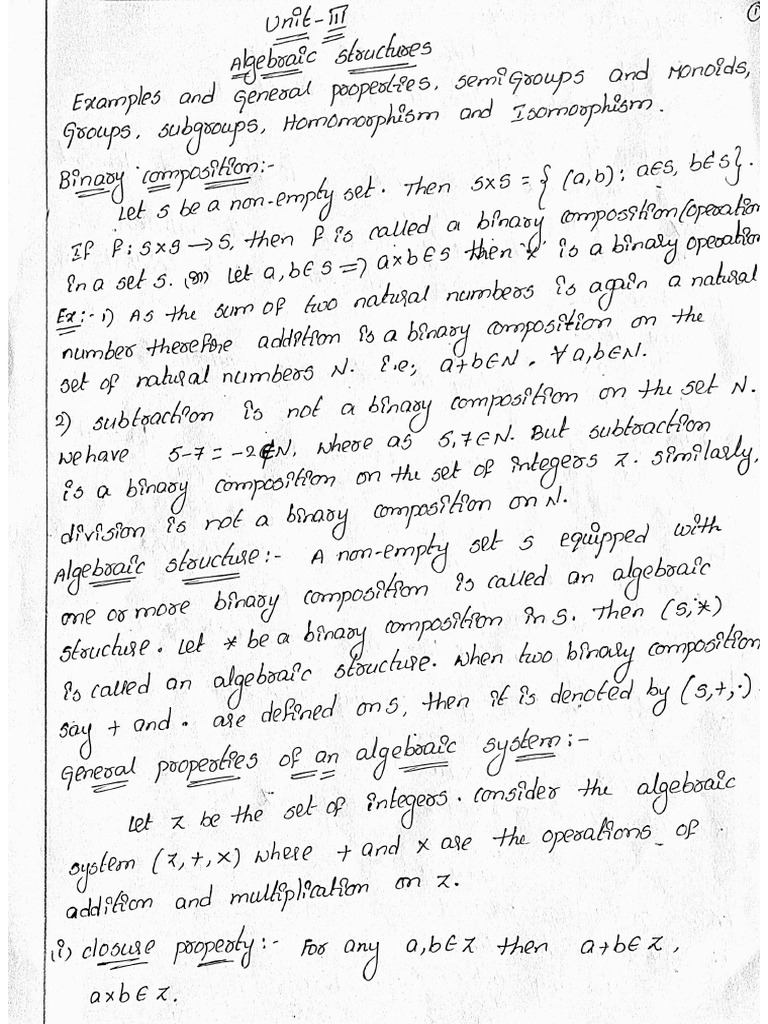 ①
Unit-III
Algebraic structures
Examples and General properties, semiGroups and Monoids,
Groups, subgroups, Homomorphism and Isomorphism.
Binary composition:-
Let s be a non-empty set. Then s×s = { (a,b) : a∈s, b∈s}.
If f : s×s → s, then f is called a binary composition (operation
in a set s. (or) Let a,b∈s ⇒ a*b∈s then * is a binary operation
Ex:- 1) As the sum of two natural numbers is again a natural
number therefore addition is a binary composition on the
set of natural numbers N. i.e; a+b∈N, ∀ a,b∈N.
2) subtraction is not a binary composition on the set N.
we have 5-7 = -2 ∉ N, where as 5,7∈N. But subtraction
is a binary composition on the set of integers z. similarly,
division is not a binary composition on N.
Algebraic structure:- A non-empty set s equipped with
one or more binary composition is called an algebraic
structure. Let * be a binary composition in s. Then (s,*)
is called an algebraic structure. when two binary composition
say + and · are defined on s, then it is denoted by (s,+,·).
General properties of an algebraic system:-
Let z be the set of integers. consider the algebraic
system (z,+,×) where + and × are the operations of
addition and multiplication on z.
(i) closure property:- For any a,b∈z then a+b∈z,
a×b∈z.